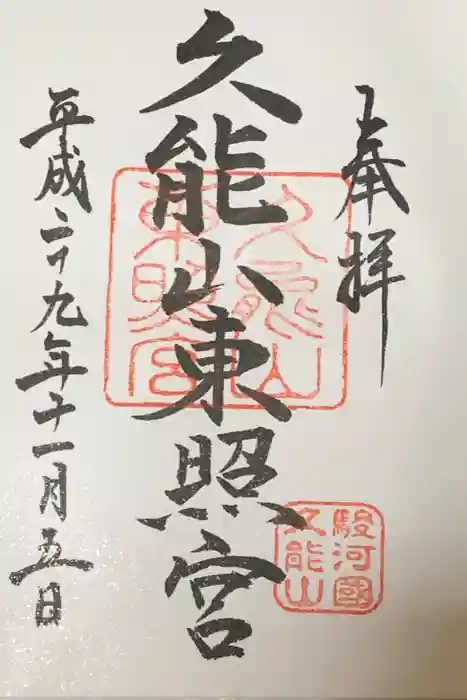 奉拝
久能山東照宮
久能山東照宮
駿河國
久能山
平成二十九年十一月五日